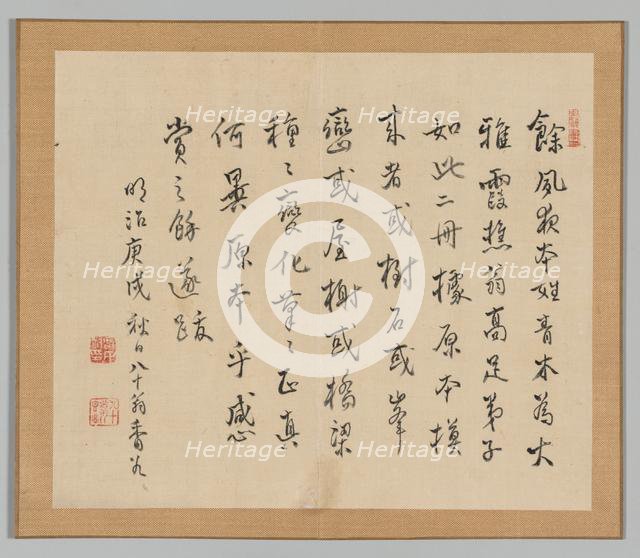 餘夙夜本姓青木為大
雅霞樵翁高足弟子
如此二冊據原本模
来者或樹石或峯
巒或屋榭或橋梁
種〻變化筆〻正真
何異原本乎感心
賞之餘遂跋
明治庚戌秋日八十翁香谷
Heritage
Heritage
Heritage
Heritage
Heritage
Heritage
Heritage
Heritage
Heritage
Heritage
Heritage
Heritage